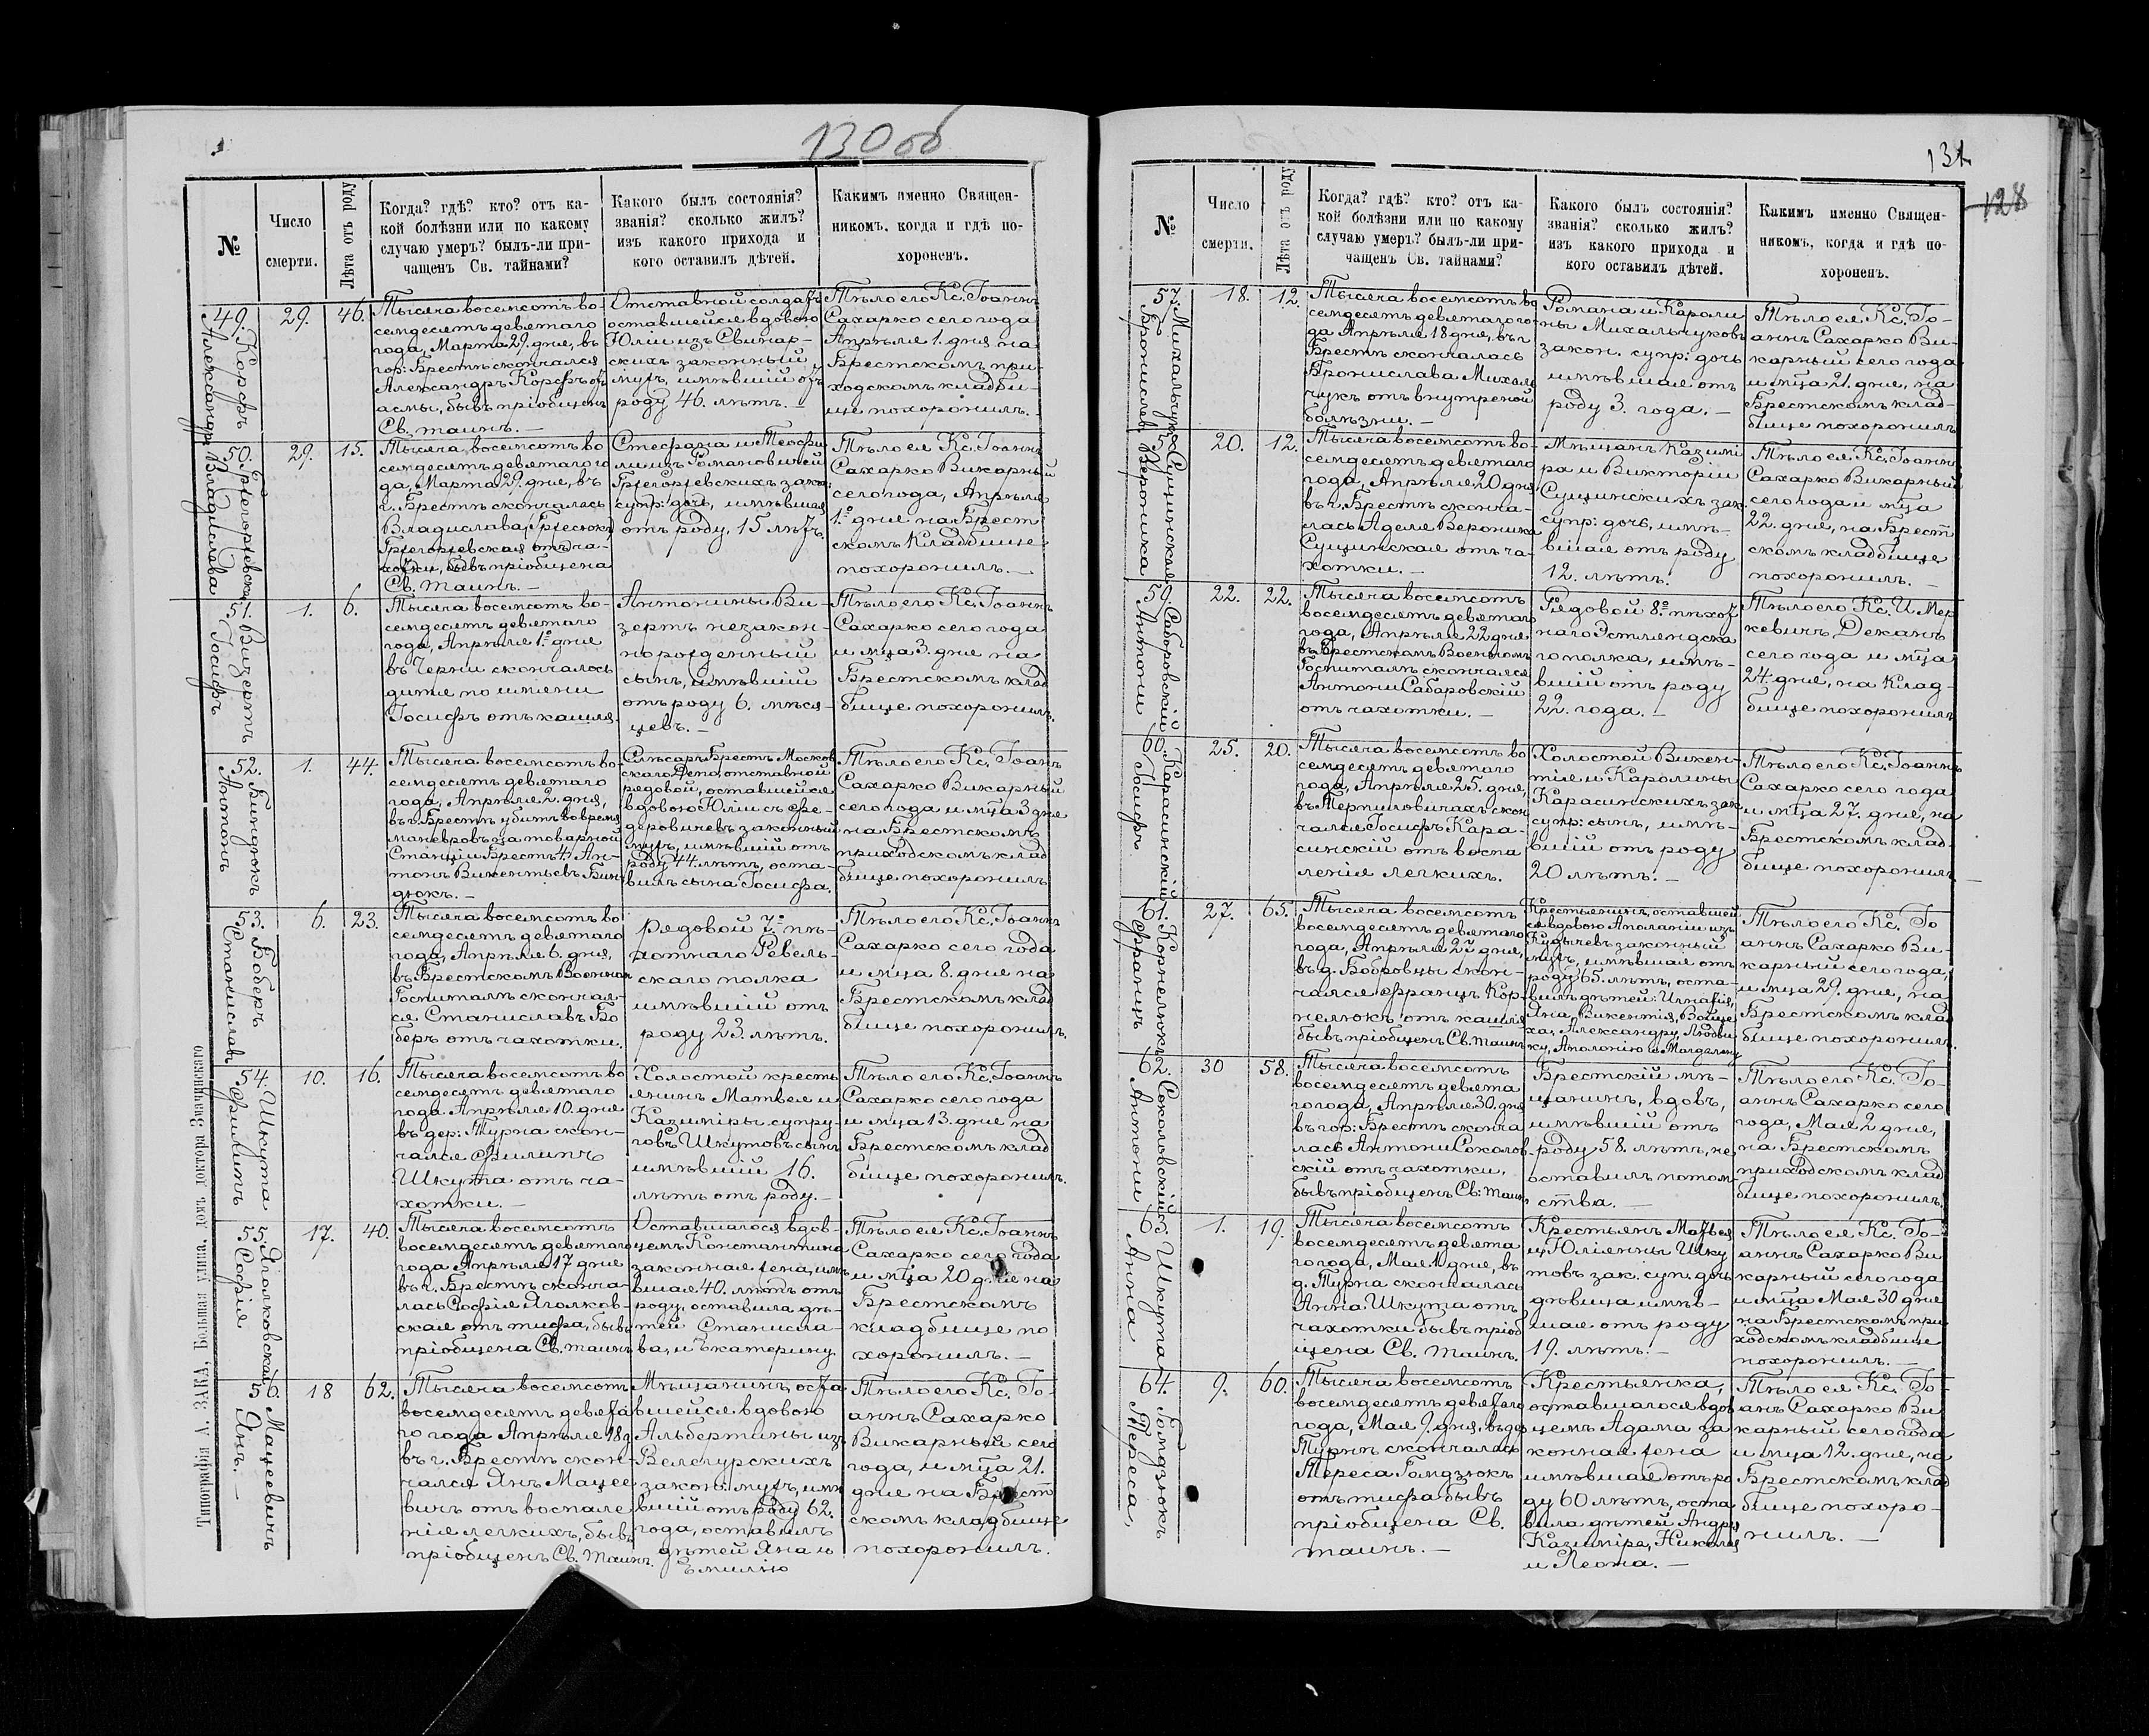 130 об
№
Число
смерти.
Лѣта отъ роду
Когда? гдѣ? кто? отъ ка-
кой болѣзни или по какому
случаю умеръ? былъ-ли при-
чащенъ Св. тайнами?
Какого былъ состоянія?
званія? сколько жилъ?
изъ какого прихода и
кого оставилъ дѣтей.
Какимъ именно Священ-
никомъ, когда и гдѣ по-
хороненъ.
49. Корфъ
Александръ
29.
46.
Тысяча восемсотъ во
семдесятъ девятаго
года, Марта 29. дня, въ
гор: Брестѣ скончался
Александръ Корфъ отъ
асмы, бывъ пріобщенъ
Св. таинъ. —
Отставной солдатъ
оставшейся вдовою
Юліи изъ Свинар-
скихъ законный
мужъ, имѣвшій отъ
роду 46. лѣтъ. —
Тѣло его Кс. Іоаннъ
Сахарко сего года
Апрѣля 1. дня на
Брестскомъ при-
ходскомъ кладби-
ще похоронилъ. —
50. Гржегоржевская
Владислава
29.
15.
Тысяча восемсотъ во
семдесятъ девятаго го
да, Марта 29. дня, въ
г. Брестѣ скончалась
Владислава
Гржегоржевская отъ ча-
хотки, бывъ пріобщена
Св. Таинъ. —
Стефана и Теофи
лиизъ Романовичей
Гржегоржевскихъ зако:
супр: дочь, имѣвшая
отъ роду, 15 лѣтъ.
Тѣло ея Кс. Іоаннъ
Сахарко Викарный
сего года, Апрѣля
1.º дня на Брест
скомъ Кладбище
похоронилъ. —
51. Визертъ
Іосифъ
1.
6.
Тысяча восемсотъ во-
семдесятъ девятаго
года, Апрѣля 1.º дня
въ Черни скончалось
дитя по имени
Іосифъ отъ кашля.
Антонины Ви-
зертъ незакон-
норожденный
сынъ, имѣвшій
отъ роду 6. мѣся-
цевъ. —
Тѣло его Кс. Іоаннъ
Сахарко сего года
и мца 3. дня на
Брестскомъ клад
бище похоронилъ.
52. Биндюкъ
Антонъ
1.
44.
Тысяча восемсотъ во-
семдесятъ девятаго
года, Апрѣля 2. дня,
въ г. Брестѣ убитъ во время
маневровъ за товарной
Станціи Брестъ 4. Ан-
тонъ Викентьевъ Бин
дюкъ. —
Слѣсаръ Брестъ Москов
скаго Депо, отставной
рядовой, оставшейся
вдовою Юліи съ Фе-
деровичевъ законный
мужъ, имѣвшій отъ
роду 44 лѣтъ, оста-
вилъ сына Іосифа.
Тѣло его Кс. Іоаннъ
Сахарко Викарный
сего года и мца 3 дня
на Брестскомъ
приходскомъ клад
бище похоронилъ
53. Боберъ
Станиславъ
6.
23.
Тысяча восемсотъ во
семдесятъ девятаго
года, Апрѣля 6. дня,
въ Брестскомъ Военном
Госпиталѣ скончал-
ся Станиславъ Бо
беръ отъ чахотки.
рядовой 7.º пѣ-
хотнаго Ревель-
скаго полка
имѣвшій отъ
роду 23. лѣтъ.
Тѣло его Кс. Іоаннъ
Сахарко сего года
и мца 8. дня на
Брестскомъ клад
бище похоронилъ.
54. Шкута
Филипъ
10.
16.
Тысяча восемсотъ во
семдесятъ девятаго
года Апрѣля 10. дня
въ дер: Турна скон-
чался Филипъ
Шкута отъ ча-
хотки. —
Холостой кресть
янинъ Матвея и
Казиміры супру-
говъ Шкутовъ сынъ
имѣвшій 16.
лѣтъ отъ роду. —
Тѣло его Кс. Іоаннъ
Сахарко сего года
и мца 13. дня на
Брестскомъ клад
бище похоронилъ.
55. Яголковская
Софія
17.
40.
Тысяча восемсотъ
восемдесятъ девятаго
года Апрѣля 17 дня
въ г. Брестѣ сконча-
лась Софія Яголков-
ская отъ тифа, бывъ
пріобщена Св. таинъ
Оставшагося вдов-
цемъ Константина
законная жена, имѣ
вшая 40. лѣтъ отъ
роду, оставила дѣ-
тей Станисла-
ва, и Екатерину.
Тѣло ея Кс. Іоаннъ
Сахарко сего года
и мца 20 дня на
Брестскомъ
кладбище по
хоронилъ. —
56. Мацеевичъ
Янъ. —
18
62.
Тысяча восемсотъ
восемдесятъ девята
го года Апрѣля 18 д
въ г. Брестѣ скон-
чался Янъ Мацее
вичъ отъ воспале
нія легкихъ, бывъ
пріобщенъ Св. Таинъ.
Мѣщанинъ, оста
вшейся вдовою
Альбертины изъ
Велегурскихъ
законн: мужъ, имѣ
вшій отъ роду 62.
года, оставилъ
дѣтей Яна и
Эмилію
Тѣло его Кс. Іо-
аннъ Сахарко
Викарный сего
года, и мца 21.
дня на Брест
скомъ кладбище
похоронилъ.
Типографія А. ЗАКА, Большая улица, домъ доктора Значинскаго
131
128
№
Число
смерти.
Лѣта отъ роду
Когда? гдѣ? кто? отъ ка-
кой болѣзни или по какому
случаю умеръ? былъ-ли при-
чащенъ Св. тайнами?
Какого былъ состоянія?
званія? сколько жилъ?
изъ какого прихода и
кого оставилъ дѣтей.
Какимъ именно Священ-
никомъ, когда и гдѣ по-
хороненъ.
57. Михальчукъ
Брониславъ
18.
12.
Тысяча восемсотъ во
семдесятъ девятаго го-
да Апрѣля 18 дня, въ г
Брестѣ скончалась
Бронислава Михаль
чукъ отъ внутреной
болѣзни. —
Романа и Кароли
ны Михальчуковъ
закон. супр: дочь
имѣвшая отъ
роду 3. года. —
Тѣло ея Кс. Іо-
аннъ Сахарко Ви-
карный сего года
и мца 21. дня, на
Брестскомъ клад-
бище похоронилъ
58. Сущинская
Вероника
20.
12.
Тысяча восемсотъ во-
семдесятъ девятаго
года, Апрѣля 20 дня,
въ г. Брестѣ сконча-
лась Аделя Вероника
Сущинская отъ ча-
хотки. —
Мѣщанъ Казимі
ра и Викторіи
Сущинскихъ зак
супр: дочь, имѣ-
вшая отъ роду
12. лѣтъ.
Тѣло ея Кс. Іоаннъ
Сахарко Викарный
сего года и мца
22. дня, на Брест
скомъ кладбище
похоронилъ. —
59. Сабаровскій
Антони
22.
22.
Тысяча восемсотъ
восемдесятъ девятаго
года, Апрѣля 22 дня
въ Брестскомъ Военномъ
Госпиталѣ скончался
Антони Сабаровскій
отъ чахотки. —
Рядовой 8.º пѣхот
наго Эстляндска
го полка, имѣ-
вшій отъ роду
22. года. —
Тѣло его Кс. И. Мер
кевичъ, Деканъ
сего года и мца
24. дня, на Клад-
бище похоронилъ
60. Карасинскій
Іосифъ
25.
20.
Тысяча восемсотъ во
семдесятъ девятаго
года, Апрѣля 25. дня,
въ Тертиловичахъ скон
чался Іосифъ Кара-
синскій отъ воспа
ленія легкихъ.
Холостой Викен-
тія и Каролины
Карасинскихъ зак.
супр: сынъ, имѣ-
вшій отъ роду
20 лѣтъ. —
Тѣло его Кс. Іоаннъ
Сахарко сего года
и мца 27. дня, на
Брестскомъ клад-
бище похоронилъ. —
61. Корнелюкъ
Францъ
27.
65.
Тысяча восемсотъ
восемдесятъ девятаго
года, Апрѣля 27 дня,
въ д. Бобровцы скон-
чался Францъ Кор-
нелюкъ отъ кашля
бывъ пріобщенъ Св. таинъ
Крестьянинъ, оставшей
ся вдовою Аполаніи изъ
Кудычевъ законный
мужъ, имѣвшая отъ
роду 65. лѣтъ, оста-
вилъ дѣтей: Игнатія,
Яна, Викентія, Войце
ха, Александру, Людви
ку, Аполонію и Магдалену
Тѣло его Кс. Іо
аннъ Сахарко Ви-
карный сего года,
и мца 29. дня, на
Брестскомъ клад
бище похоронилъ.
62. Соколовскій
Антони
30
58.
Тысяча восемсотъ
восемдесятъ девята
го года, Апрѣля 30. дня
въ гор: Брестѣ сконча
лась Антони Соколов-
скій отъ чахотки,
бывъ пріобщенъ Св: Таинъ
Брестскій мѣ-
щанинъ, вдовъ,
имѣвшій отъ
роду 58. лѣтъ, не
оставилъ потом-
ства. —
Тѣло его Кс. Іо-
аннъ Сахарко сего
года, Мая 2 дня,
на Брестскомъ
приходскомъ клад
бище похоронилъ.
63. Шкута
Анна
1.
19.
Тысяча восемсотъ
восемдесятъ девята
го года, Мая 1 дня, въ
д. Турна скончалась
Анна Шкута отъ
чахотки бывъ пріоб
щена Св. таинъ.
Крестьянъ Матвея
и Юліянны Шку
товъ зак. суп. дочь
дѣвица имѣ-
вшая отъ роду
19. лѣтъ. —
Тѣло ея Кс. Іо-
аннъ Сахарко Ви
карный сего года
и мца Мая 30 дня
на Брестскомъ при
ходскомъ кладбище
похоронилъ. —
64. Гомдзюкъ
Тереса,
9.
60.
Тысяча восемсотъ
восемдесятъ девятаго
года, Мая 9. дня, въ д
Турнѣ скончалась
Тереса Гомдзюкъ
отъ тифа бывъ
пріобщена Св.
таинъ. —
Крестьянка,
оставшагося вдов
цемъ Адама за
конная жена
имѣвшая отъ ро
ду 60 лѣтъ, оста
вила дѣтей Андрея
Казиміра, Николая
и Леона. —
Тѣло ея Кс. Іо-
анъ Сахарко Ви
карный сего года
и мца 12. дня, на
Брестскомъ клад
бище похоро-
нилъ. —